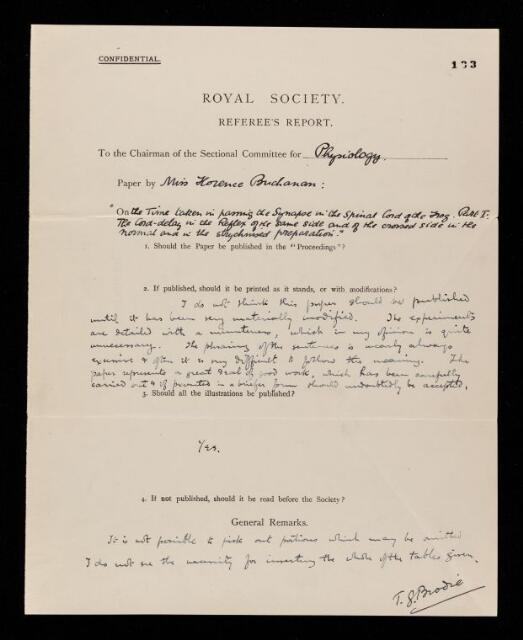 CONFIDENTIAL.
133
ROYAL SOCIETY.
REFEREE'S REPORT.
To the Chairman of the Sectional Committee for Physiology.
Paper by Miss Florence Buchanan:
"On the Time taken in passing the Synapse in the Spinal Cord of the Frog. Part I.
The Cord-delay in the Reflex of the same side and of the crossed side in the
normal and in the strychnised preparation."
1. Should the Paper be published in the "Proceedings"?
2. If published, should it be printed as it stands, or with modifications?
I do not think this paper should be published
until it has been very materially modified. The experiments
are detailed with a minuteness, which in my opinion is quite
unnecessary. The phrasing of the sentences is nearly always
& often it is very difficult to follow the meaning. The
paper represents a great deal of good work, which has been carefully
carried out & if presented in a briefer form should undoubtedly be accepted.
3. Should all the illustrations be published?
Yes.
4. If not published, should it be read before the Society?
General Remarks.
It is not possible to pick out portions which may be omitted
I do not see the necessity for inserting the whole of the tables given.
T. G. Brodie